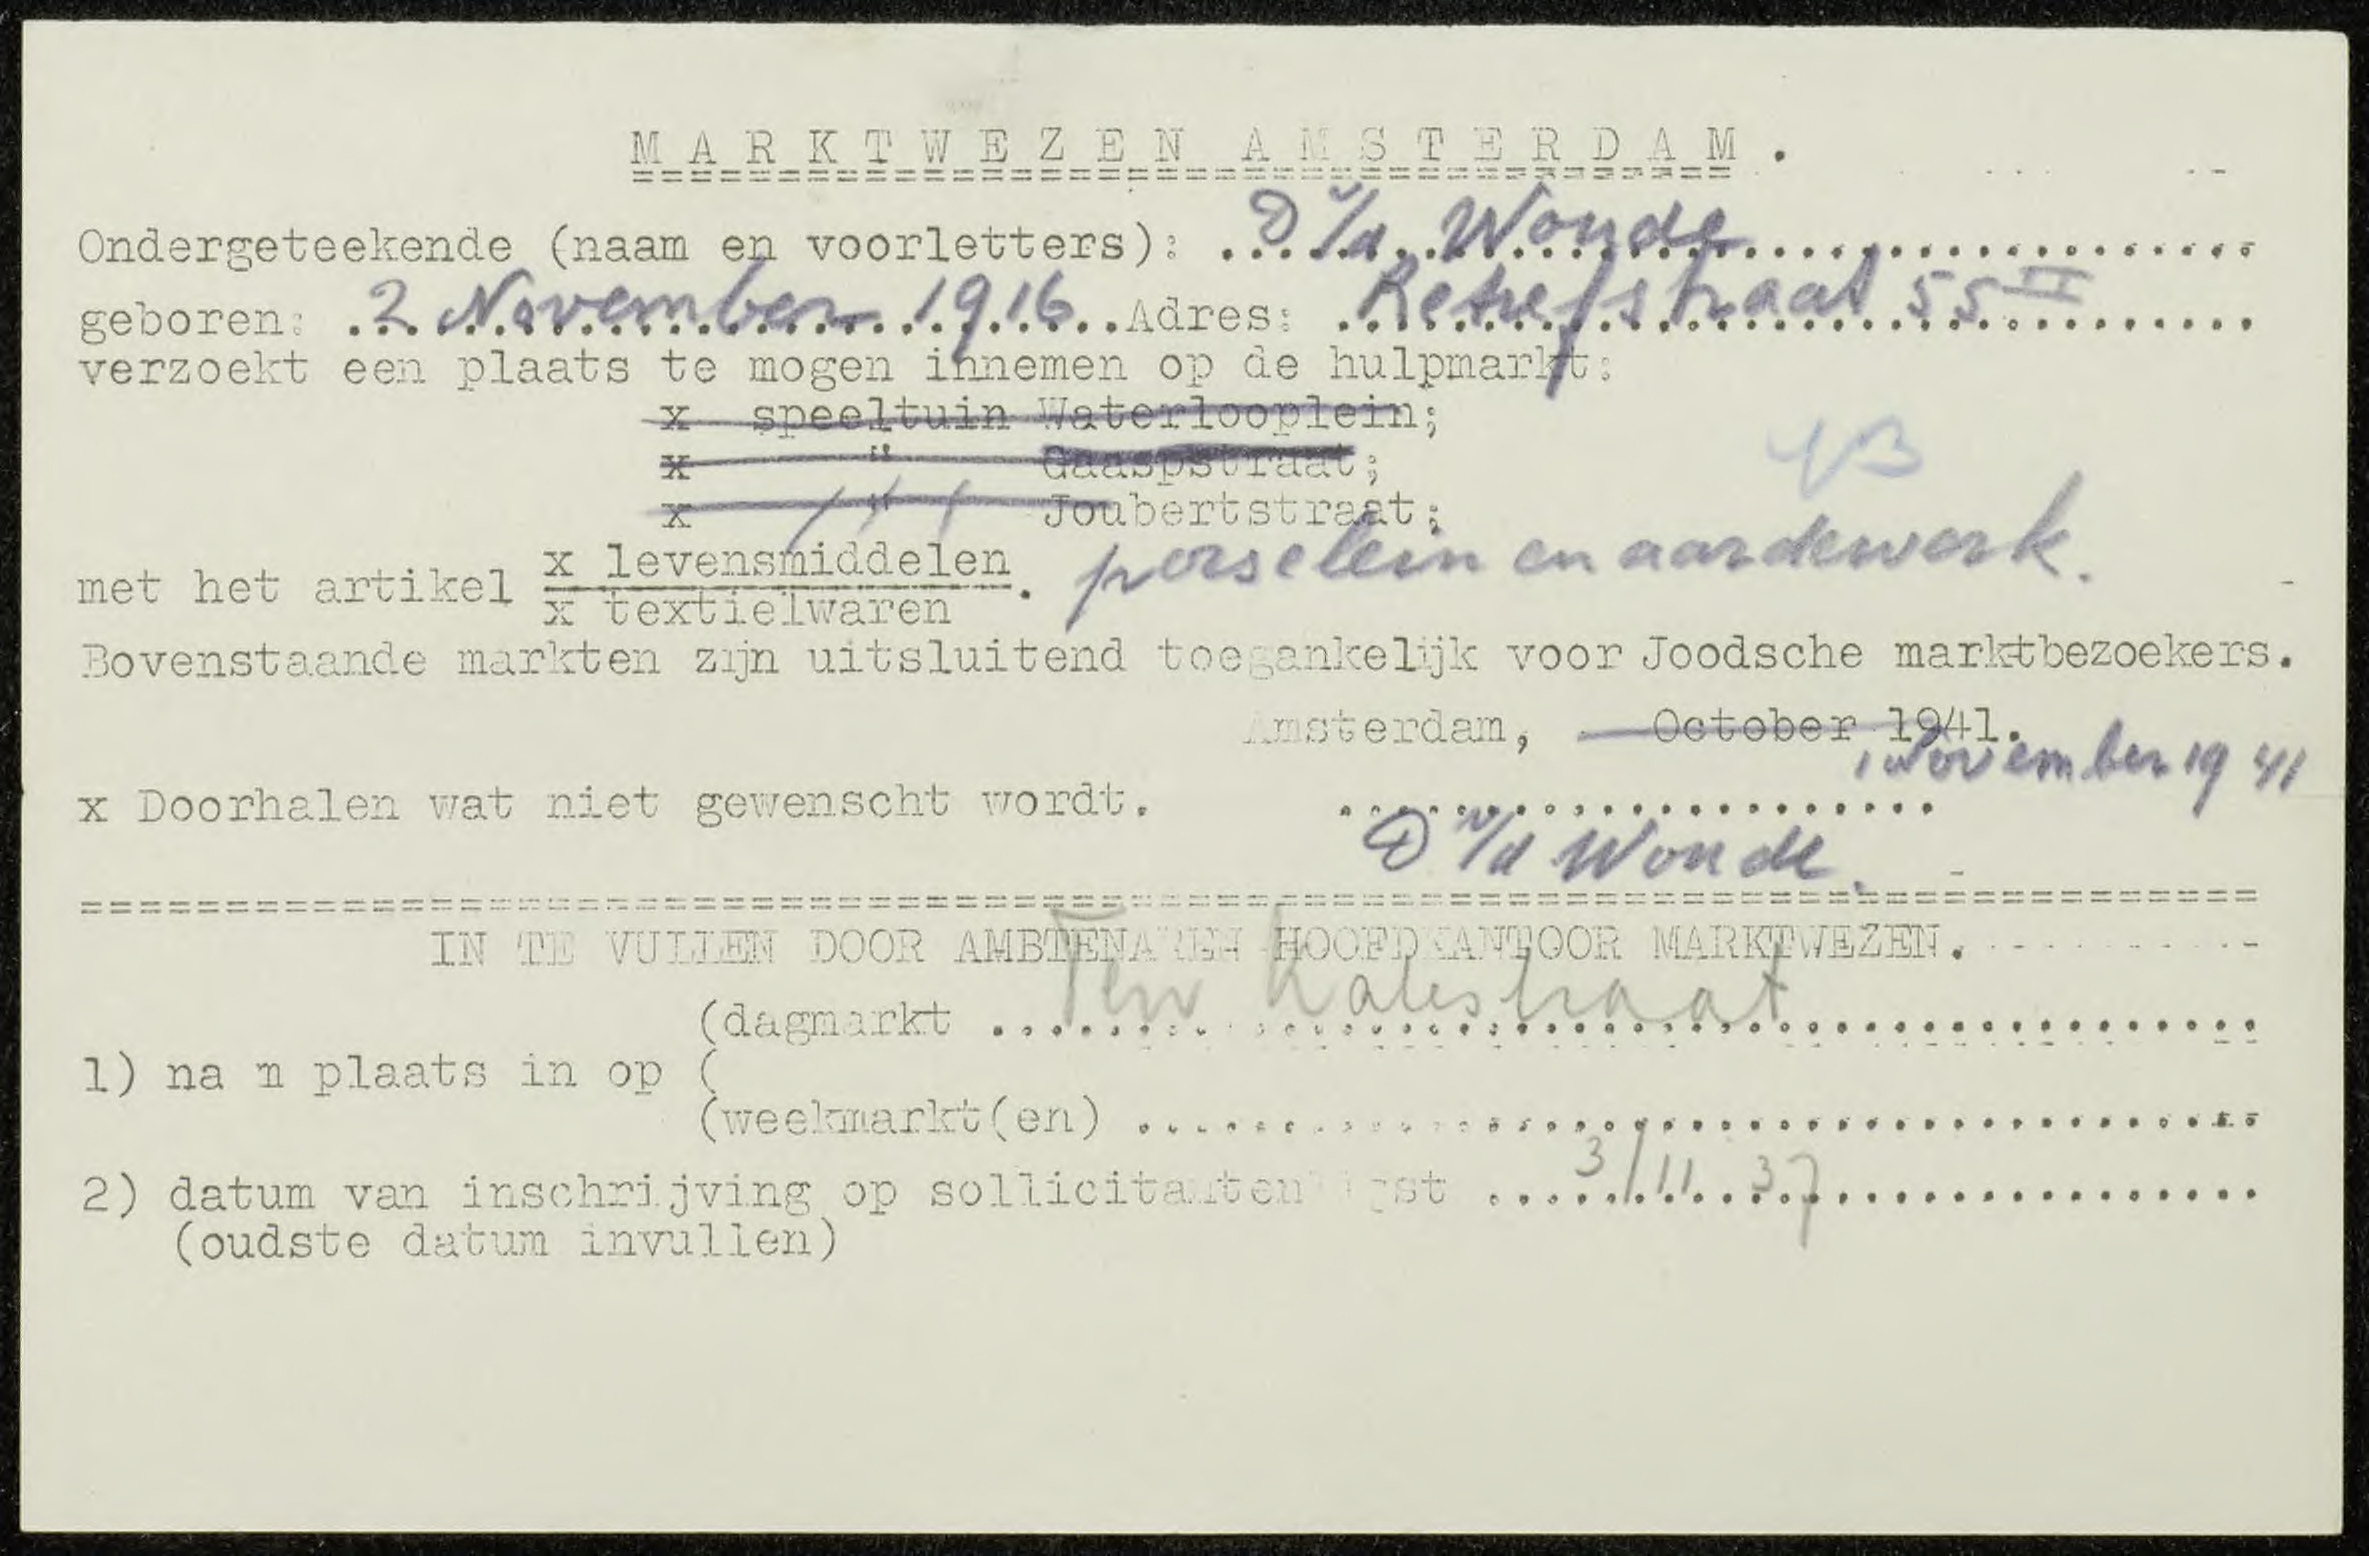 MARKTWEZEN AMSTERDAM.
Ondergeteekende (naam en voorletters): D v/d Woude
geboren: 2 November 1916 Adres: Retiefstraat 55 II
verzoekt een plaats te mogen innemen op de hulpmarkt:
x speeltuin Waterlooplein;
x " Gaaspstraat;
x " Joubertstraat;
met het artikel x levensmiddelen
x textielwaren. porselein en aardewerk.
Bovenstaande markten zijn uitsluitend toegankelijk voor Joodsche marktbezoekers.
Amsterdam, October 1941.
1 November 1941
x Doorhalen wat niet gewenscht wordt.
D v/d Woude.
IN TE VULLEN DOOR AMBTENAREN HOOFDKANTOOR MARKTWEZEN.
(dagmarkt Ten Katestraat
1) na m plaats in op (
(weekmarkt(en)
2) datum van inschrijving op sollicitanten st 3/11 37
(oudste datum invullen)